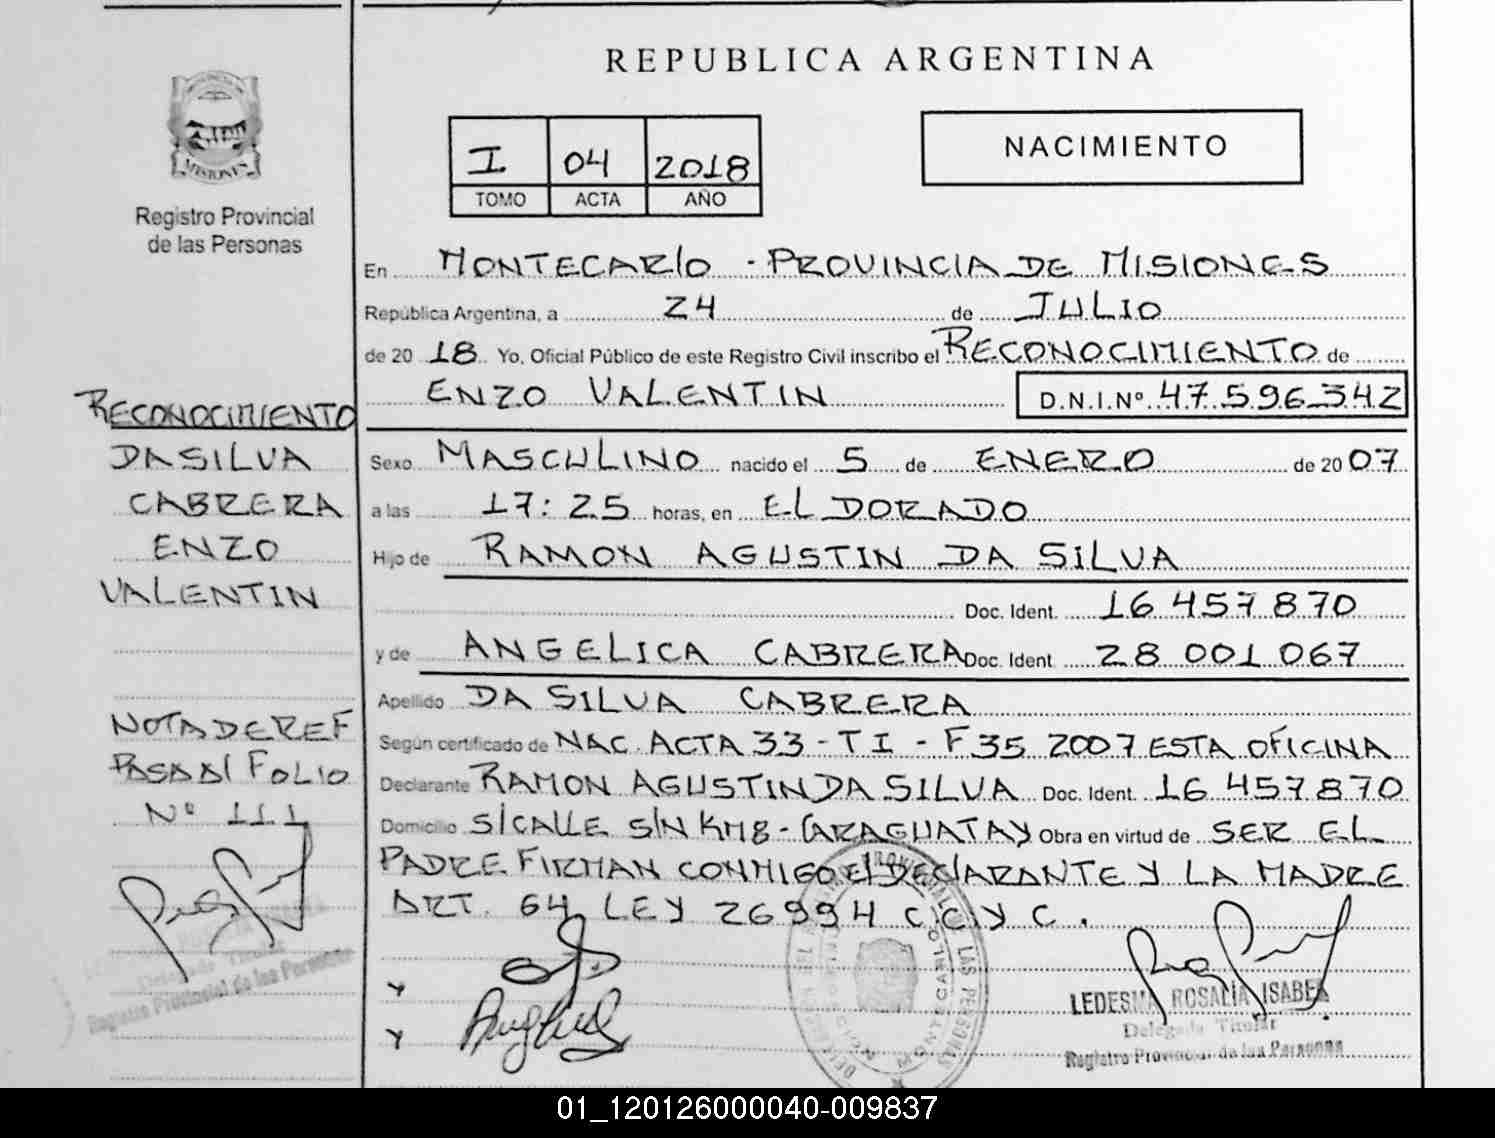 REPUBLICA ARGENTINA
MISIONES
Registro Provincial
de las Personas
I 04 2018
TOMO ACTA AÑO
NACIMIENTO
En MONTECARLO - PROVINCIA DE MISIONES
República Argentina, a 24 de JULIO
de 20 18 Yo, Oficial Público de este Registro Civil inscribo el RECONOCIMIENTO de
ENZO VALENTIN D.N.I.Nº 47.596.342
Sexo MASCULINO nacido el 5 de ENERO de 20 07
a las 17:25 horas, en ELDORADO
Hijo de RAMON AGUSTIN DA SILVA
Doc. Ident. 16 457 870
y de ANGELICA CABRERA Doc. Ident 28 001 067
Apellido DA SILVA CABRERA
Según certificado de NAC. ACTA 33 - T I - F 35 2007 ESTA OFICINA
Declarante RAMON AGUSTIN DA SILVA Doc. Ident. 16 457 870
Domicilio S/CALLE S/N KM8 - CARAGUATAY Obra en virtud de SER EL
PADRE FIRMAN CONMIGO El DEClARANTE Y LA MADRE
ART. 64 LEY 26994 C.C. Y C.
RECONOCIMIENTO
DA SILVA
CABRERA
ENZO
VALENTIN
NOTA DE REF
PASA Al FOLIO
Nº 111
Delegada Titular
Registro Provincial de las Personas
LEDESMA ROSALIA ISABEL
Delegada Titular
Registro Provincial de las Personas
MONTECARLO
01_120126000040-009837